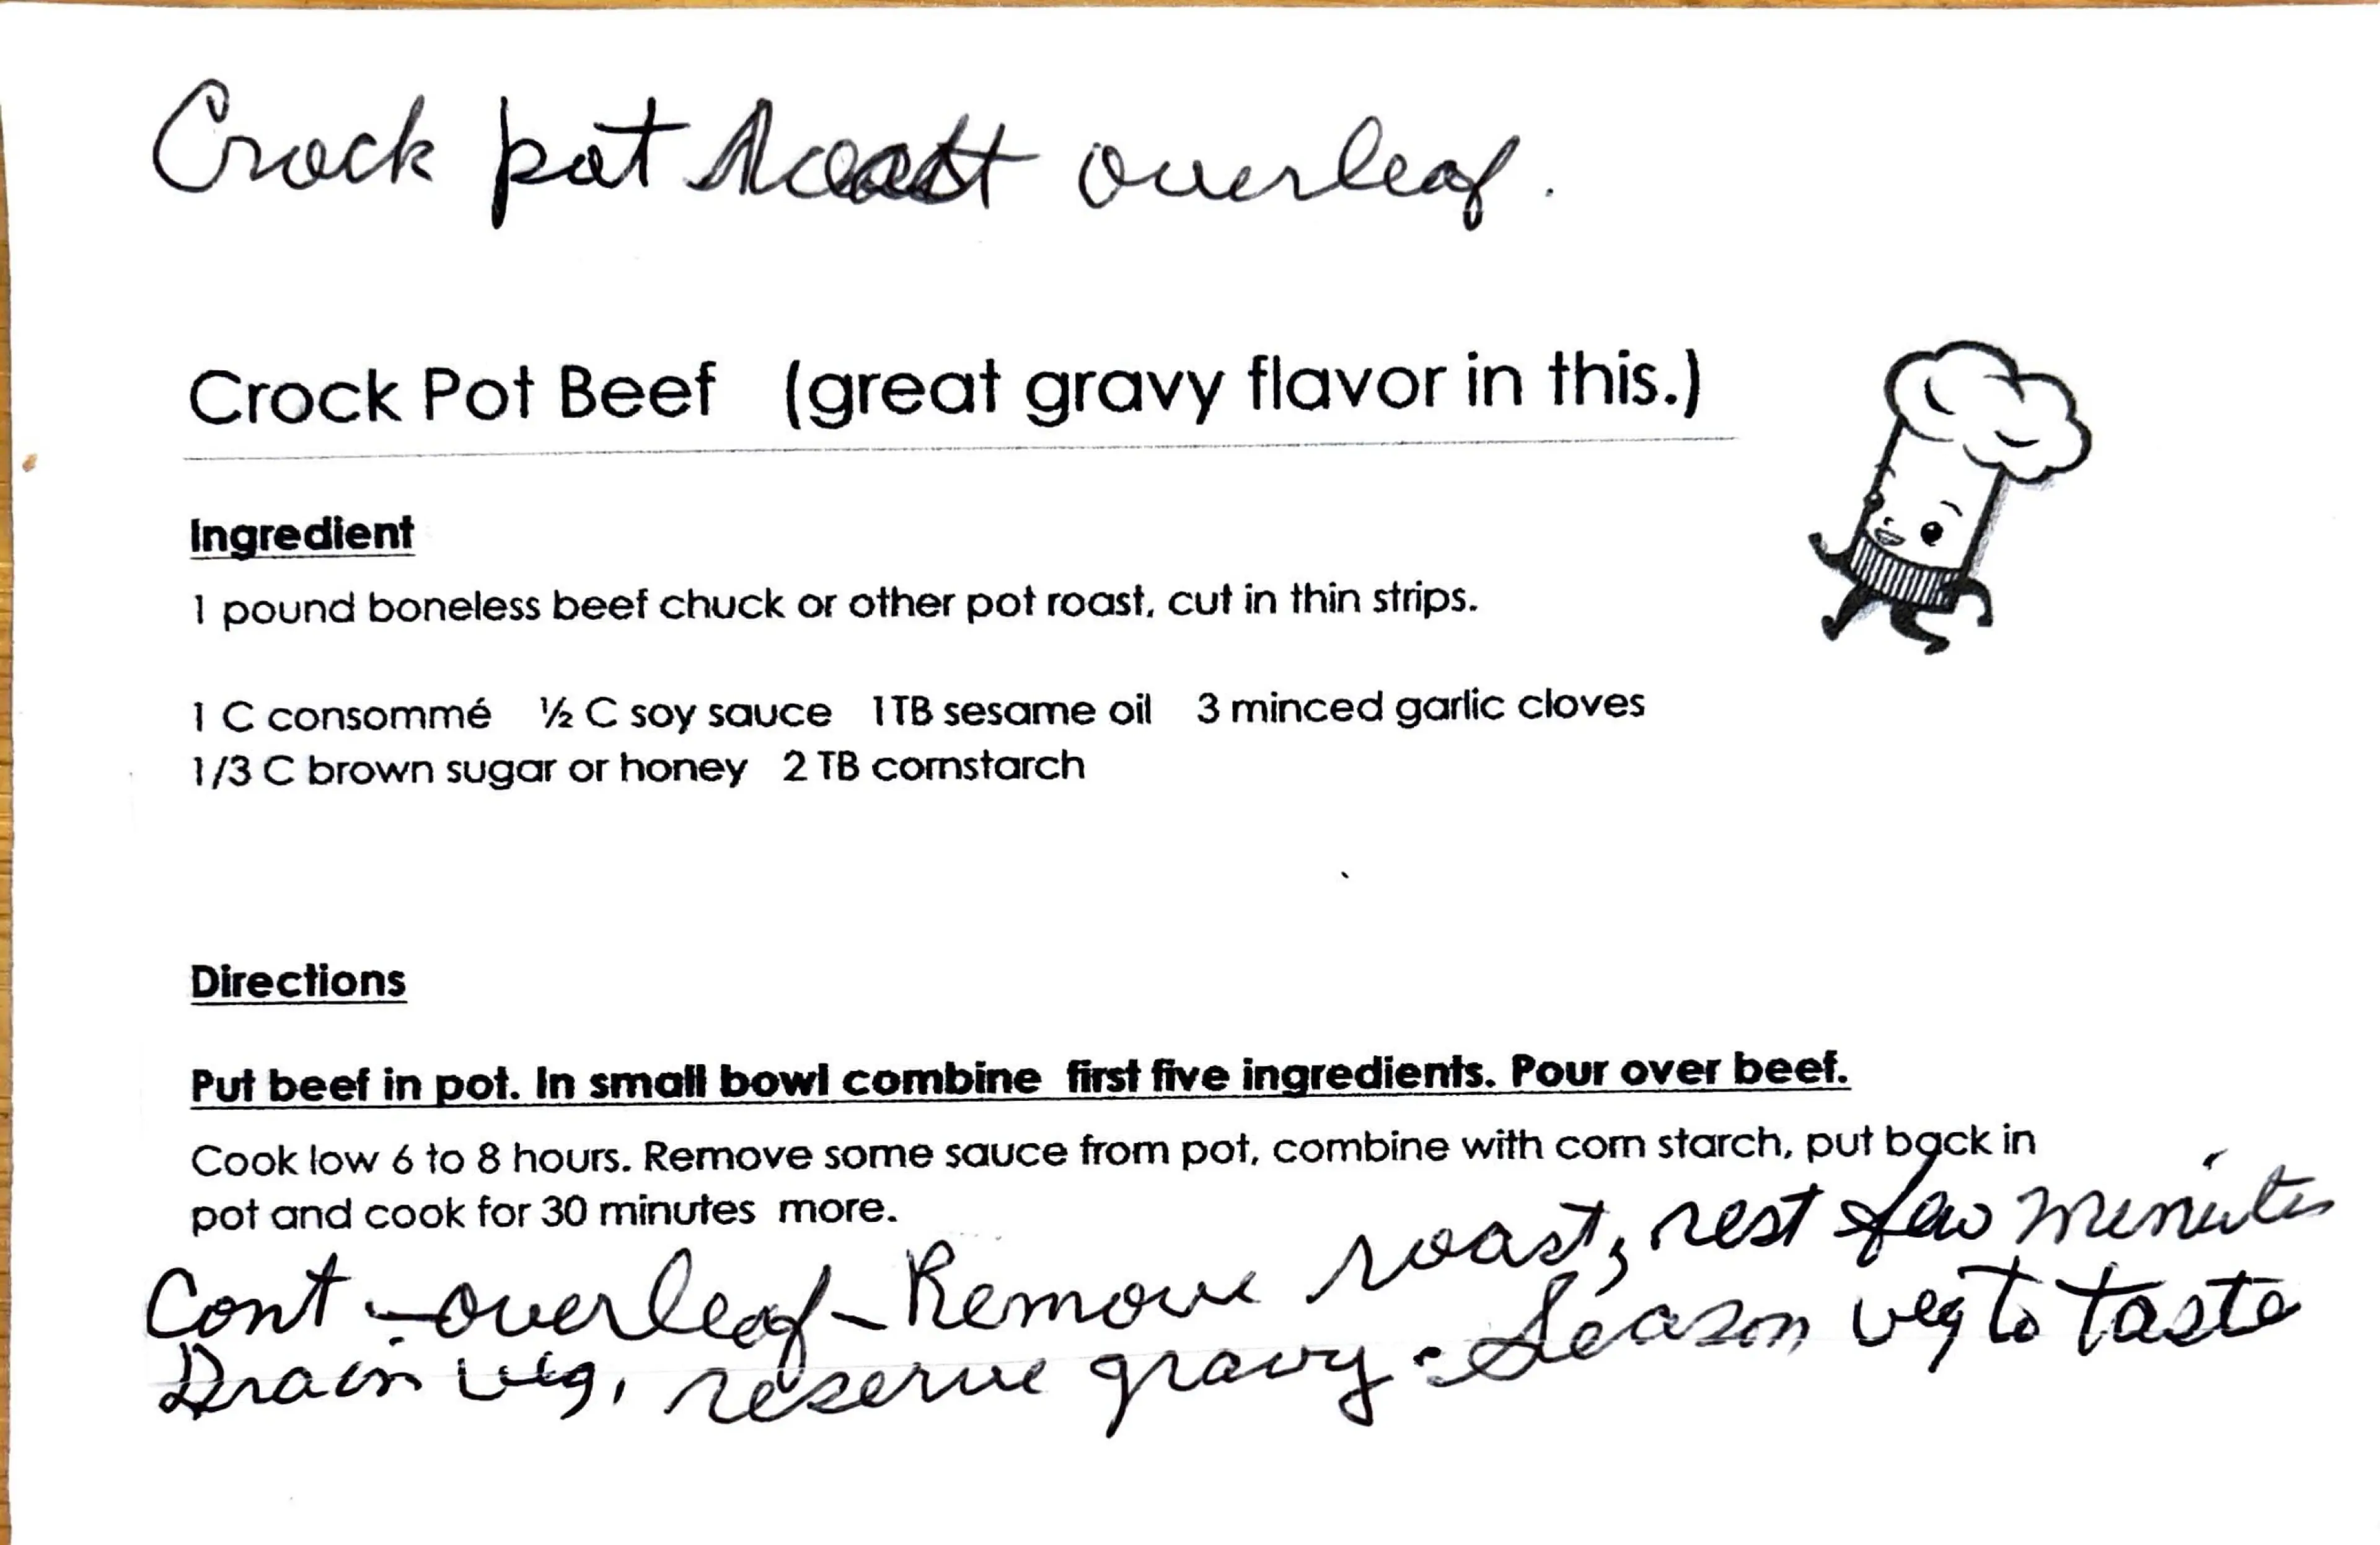 Crock pot Roast overleaf.
Crock Pot Beef (great gravy flavor in this.)
Ingredient
1 pound boneless beef chuck or other pot roast, cut in thin strips.
1 C consommé ½ C soy sauce 1TB sesame oil 3 minced garlic cloves
1/3 C brown sugar or honey 2 TB cornstarch
Directions
Put beef in pot. In small bowl combine first five ingredients. Pour over beef.
Cook low 6 to 8 hours. Remove some sauce from pot, combine with corn starch, put back in
pot and cook for 30 minutes more.
Cont - overleaf - Remove roast, rest few minutes
Drain veg, reserve gravy - Season veg to taste